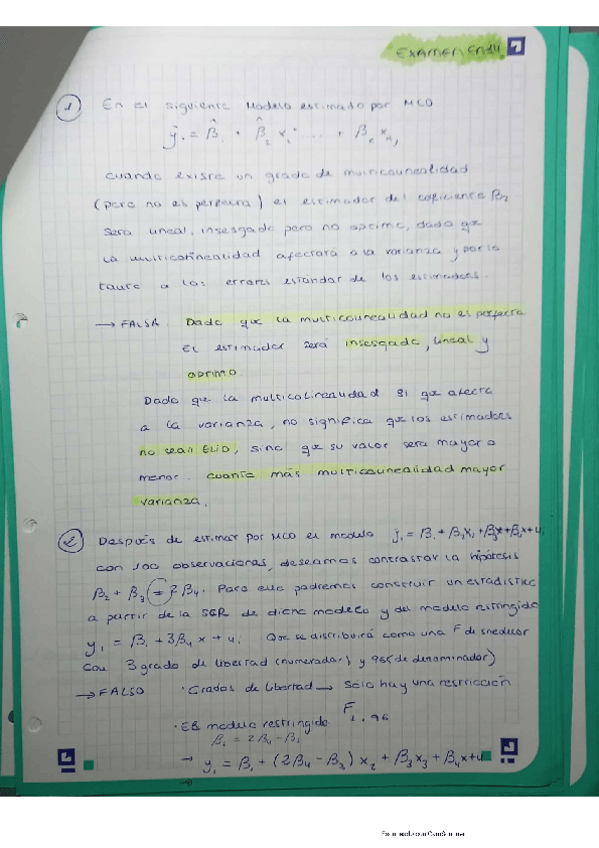 EXAMEN EN14
1 En el siguiente modelo estimado por MCO
ŷ. = β̂. + β̂2 x. + ..... + βk xk,
cuando existe un grado de multicolinealidad
(pero no es perfecta) el estimador del coeficiente β2
sera lineal, insesgado pero no optimo, dado que
la multicolinealidad afectará a la varianza y por lo
tanto a los errores estandar de los estimadores.
→ FALSA. Dado que la multicolinealidad no es perfecta
el estimador será insesgado, lineal y
optimo
Dado que la multicolinealidad si que afecta
a la varianza, no significa que los estimadores
no sean ELIO, sino que su valor sera mayor o
menor. cuanto más multicolinealidad mayor
varianza.
2 Después de estimar por MCO el modelo
con 100 observaciones, deseamos contrastar la hipótesis
β2 + β3 = 2β4. Para ello podremos construir un estadistic
a partir de la SCR de dicho modelo y del modelo restringido
y1 = β1 + 3β4 x + u. Que se distribuirá como una F de snedecor
con 3 grado de libertad (numerador) y de denominador)
→ FALSO · Grados de libertad → Sólo hay una restricción
F1, 96
· El modelo restringido
= 2β4 - 
→ y1 = β1 + (2β4 - β3) x2 + β3 x3 + β4 x + u